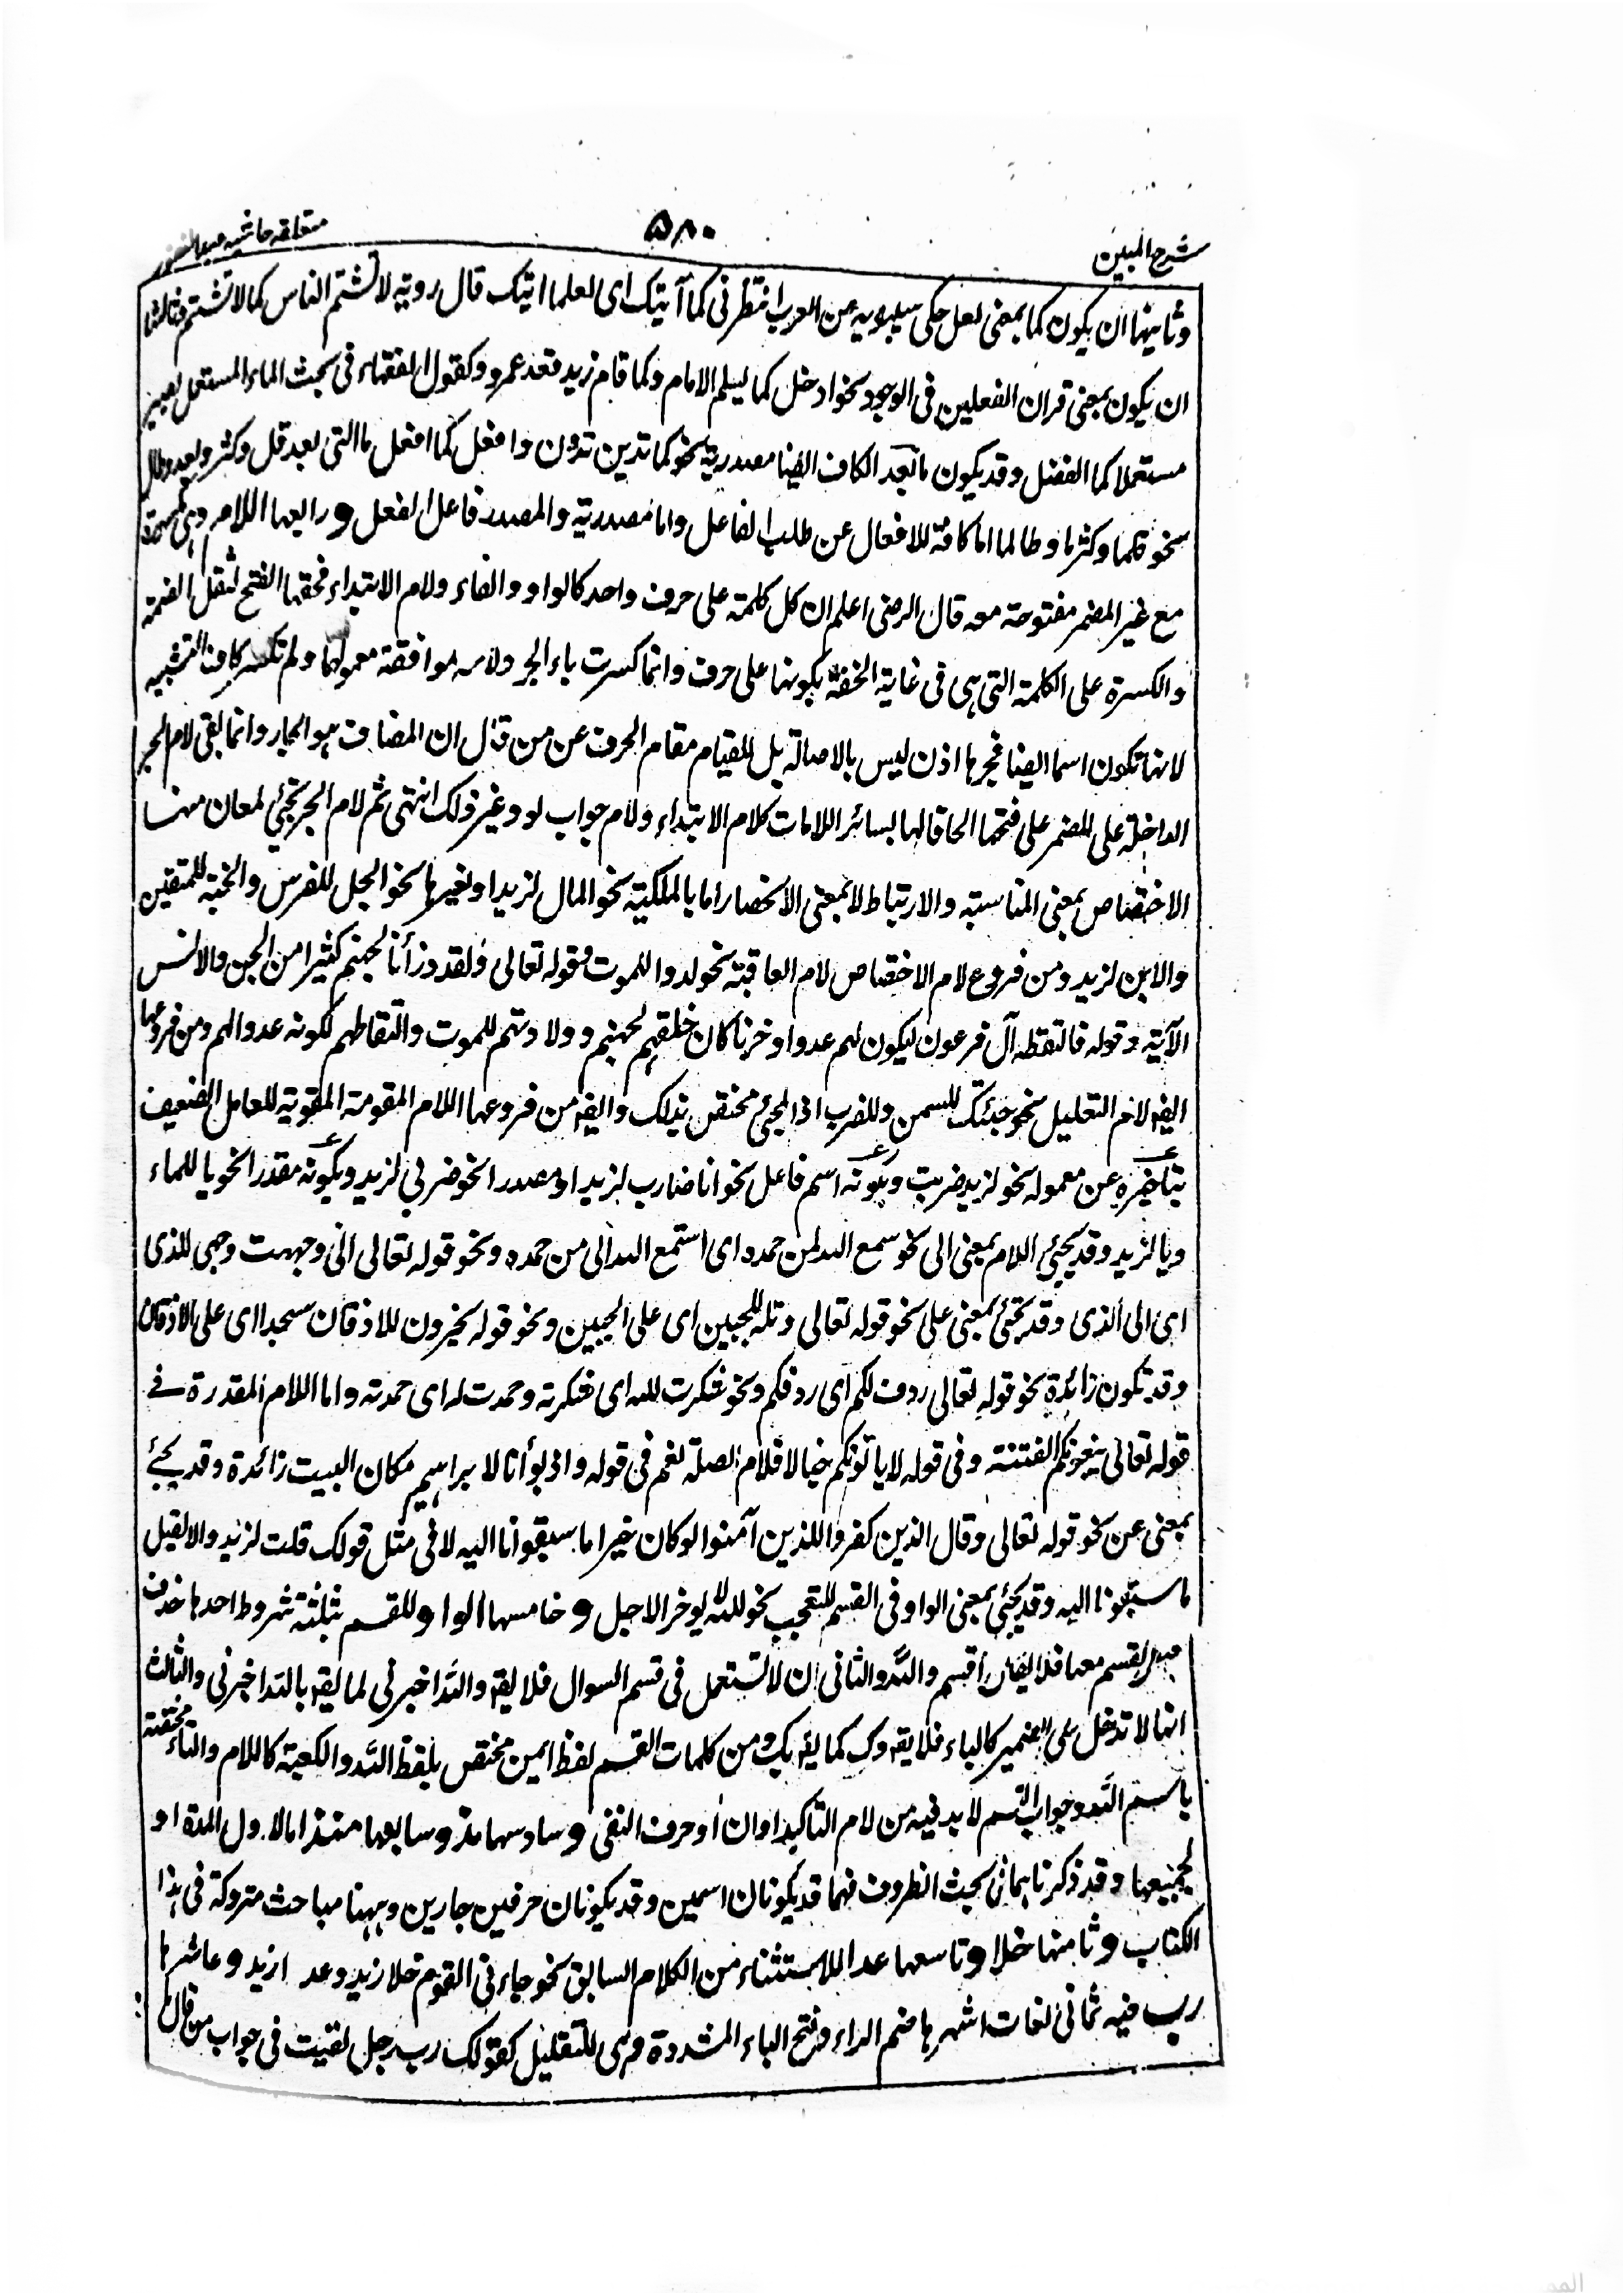 شرح المبين
۵۸۰
متعلقه حاشيه عبدالغفور
وثانيها ان يكون كما بمعنى لعل حكى سيبويه عن العرب انتظرنى كما آتيك اى لعلما اتيك قال روبه لا تشتم الناس كما لا تشتم وثالثها
ان يكون بمعنى قران الفعلين فى الوجود نحو ادخل كما ليسلم الامام وكما قام زيد قعد عمرو وكقول الفقهاء فى بحث الماء المستعمل يصير
مستعملا كما انفصل وقد يكون ما بعد الكاف ايضا مصدرية نحو كما تدين تدون وافعل كما افعل ما التى بعد قل وكثر وبعد وطال
نحو قلما وكثرما وطالما اما كافة للافعال عن طلب الفاعل واما مصدرية والمصدر فاعل الفعل ورابعها اللام وهى مكسورة
مع غير المضمر مفتوحة معه قال الرضى اعلم ان كل كلمة على حرف واحد كالواو والفاء ولام الابتداء فحقها الفتح لثقل الضمة
والكسرة على الكلمة التى هى فى غاية الخفة بكونها على حرف وانما كسرت باء الجر ولامه لموافقة معمولهما ولم تكسر كاف التشبيه
لانها تكون اسما ايضا فجرها اذن ليس بالاصالة بل للقيام مقام الحرف عن من قال ان المضاف هو الجار وانما بقى لام الجر
الداخلة على المضمر على فتحها الحاقا لها بسائر اللامات كلام الابتداء ولام جواب لو وغير ذلك انتهى ثم لام الجر تجئ لمعان منها
الاختصاص بمعنى المناسبة والارتباط لا بمعنى الانحصار اما بالملكية نحو المال لزيد او بغيرها نحو الجل للفرس والجنة للمتقين
والابن لزيد ومن فروع لام الاختصاص لام العاقبة نحو لدوا للموت وقوله تعالى ولقد ذرأنا لجهنم كثيرا من الجن والانس
الآية وقوله فالتقطه آل فرعون ليكون لهم عدوا وحزنا كان خلقهم لجهنم وولادتهم للموت والتقاطهم لكونه عدوا لهم ومن فروعها
ايضا لام التعليل نحو جئتك للسمن وللضرب اذ المجئ مختص بذلك وايضا من فروعها اللام المقومة المقوية للعامل الضعيف
بتاخيره عن معموله نحو لزيد ضربت وبكونه اسم فاعل نحو انا ضارب لزيد او مصدرا نحو ضربى لزيد وبكونه مقدرا نحو يا للماء
ويا لزيد وقد يجئ اللام بمعنى الى نحو سمع الله لمن حمده اى استمع الله الى من حمده ونحو قوله تعالى انى وجهت وجهى للذى
اى الى الذى وقد تجئ بمعنى على نحو قوله تعالى وتله للجبين اى على الجبين ونحو قوله يخرون للاذقان سجدا اى على الاذقان
وقد تكون زائدة نحو قوله تعالى ردف لكم اى ردفكم ونحو شكرت لله اى شكرته وحمدت له اى حمدته واما اللام المقدرة فى
قوله تعالى يبغونكم الفتنة وفى قوله لا يألونكم خبالا فلام الصلة نعم فى قوله واذ بوأنا لابراهيم مكان البيت زائدة وقد يجئ
بمعنى عن نحو قوله تعالى وقال الذين كفروا للذين آمنوا لو كان خيرا ما سبقونا اليه لا فى مثل قولك قلت لزيد والا لقيل
ما سبقتمونا اليه وقد يجئ بمعنى الواو فى القسم للتعجب نحو لله لا يوخر الاجل وخامسها الواو وللقسم ثلثة شروط احدها حذف
فعل القسم معها فلا يقال اقسم والله والثانى ان لا تستعمل فى قسم السوال فلا يقه والله اخبرنى لما يقه بالله اخبرنى والثالث
انها لا تدخل على الضمير كالباء فلا يقه وك كما يقه بك ومن كلمات القسم لفظ ايمن مختص بلفظ الله والكعبة كاللام والتاء مختصة
باسم الله وجواب القسم لا بد فيه من لام التاكيد او ان او حرف النفى وسادسها مذ وسابعها منذ اما لاول المدة او
لجميعها وقد ذكرناهما فى بحث الظروف فهما قد يكونان اسمين وقد يكونان حرفين جارين وههنا مباحث متروكة فى هذا
الكتاب وثامنها خلا وتاسعها عدا للاستثناء من الكلام السابق نحو جاءنى القوم خلا زيد وعدا زيد وعاشرها
رب فيه ثمانى لغات اشهرها ضم الراء وفتح الباء المشددة وهى للتقليل كقولك رب رجل لقيت فى جواب من قال